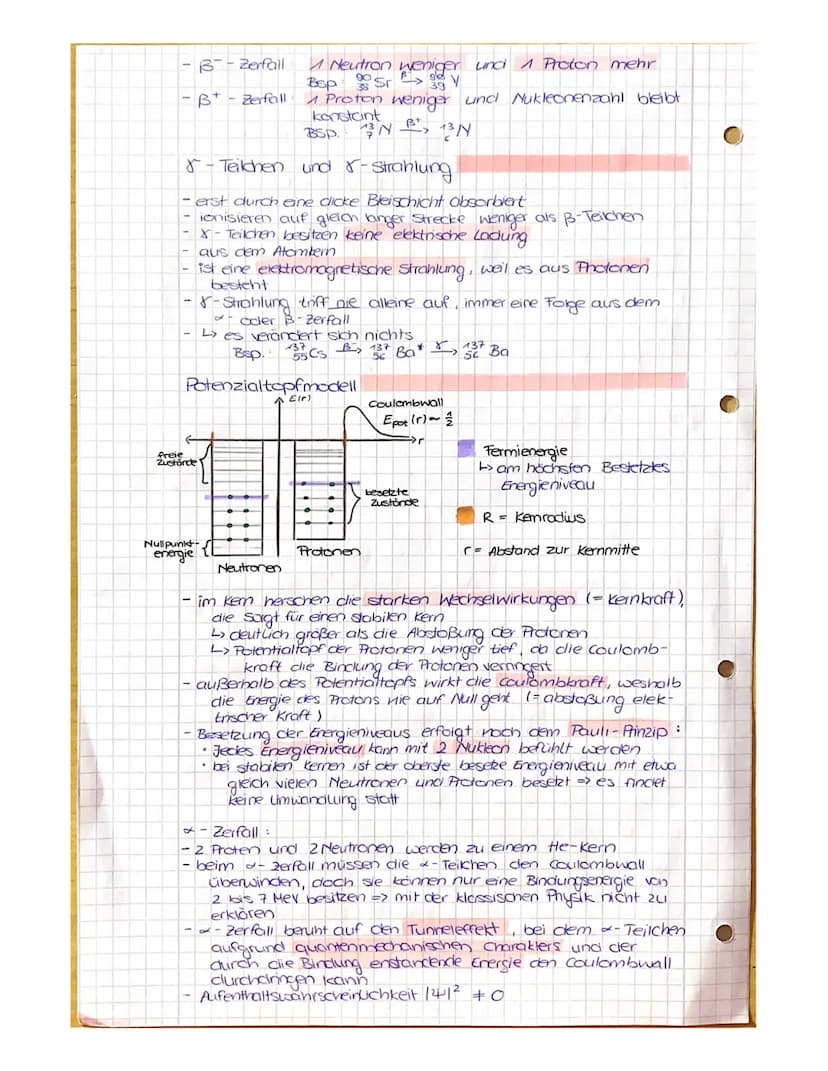 - β⁻ - Zerfall 1 Neutron weniger und 1 Proton mehr
Bsp. ⁹⁰₃₈Sr β⁻→ ⁹⁰₃₉Y
- β⁺ - Zerfall: 1 Proton weniger und Nukleonenzahl bleibt
konstant
BSP.: ¹³₇N β⁺→ ¹³₆N
γ - Teilchen und γ - Strahlung
- erst durch eine dicke Bleischicht absorbiert
- ionisieren auf gleich langer Strecke weniger als β-Teilchen
- γ - Teilchen besitzen keine elektrische Ladung
- aus dem Atomkern
- ist eine elektromagnetische Strahlung, weil es aus Photonen
besteht
- γ-Strahlung triff nie alleine auf, immer eine Folge aus dem
α- oder β-Zerfall
- ↳ es verändert sich nichts
Bsp.: ¹³⁷₅₅Cs β⁻→ ¹³⁷₅₆Ba* γ→ ¹³⁷₅₆Ba
Potenzialtopfmodell
E(r)
Coulombwall
Epot (r) ~ ½
r
freie
Zustände
besetzte
Zustände
Nullpunkt-
energie
Neutronen
Protonen
Fermienergie
↳ am höchsten Besetztes
Energieniveau
R = Kernradius
r = Abstand zur Kernmitte
- im Kern herschen die starken Wechselwirkungen (= Kernkraft),
die sorgt für einen stabilen Kern
↳ deutlich größer als die Abstoßung der Protonen
↳ Potentialtopf der Protonen weniger tief, da die Coulomb-
kraft die Bindung der Protonen verringert
- außerhalb des Potentialtopfs wirkt die Coulombkraft, weshalb
die Energie des Protons nie auf Null geht (= abstoßung elek-
trischer Kraft)
- Besetzung der Energieniveaus erfolgt nach dem Pauli-Prinzip:
• Jedes Energieniveau kann mit 2 Nukleon befühlt werden
• bei stabilen Kernen ist der oberste besetze Energieniveau mit etwa
gleich vielen Neutronen und Protonen besetzt => es findet
keine Umwandlung statt
α - Zerfall:
- 2 Proten und 2 Neutronen werden zu einem He-Kern
- beim α- Zerfall müssen die α-Teilchen den Coulombwall
überwinden, doch sie können nur eine Bindungsenergie von
2 bis 7 MeV besitzen => mit der klassischen Physik nicht zu
erklären
- α - Zerfall beruht auf den Tunneleffekt, bei dem α-Teilchen
aufgrund quantenmechanischen Charakters und der
durch die Bindung enstandende Energie den Coulombwall
durchdringen kann
- Aufenthaltswahrscheinlichkeit |ψ|² ≠ 0